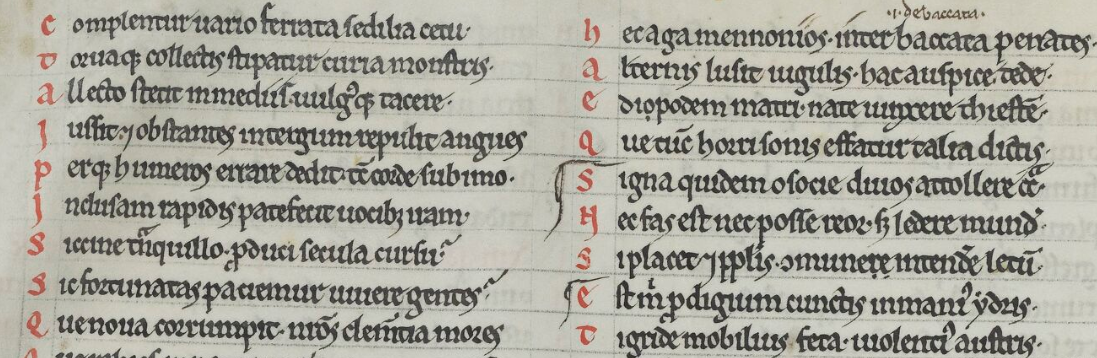 Complentur uario ferrata sedilia cetu·
Toruaqꝫ collectis stipatur curia monstris·
Allecto stetit in mediis· uulgꝰqꝫ tacere·
Iussit· ⁊ obstantes in tergum repulit angues
Perqꝫ humeros errare dedit· tc̄ corde sub imo·
Inclusam rapidis patefecit uocibꝫ iram·
Siccine tͣnquillo· ꝓduci secula cursu·
Sic fortunatas paciemur uiuere gentes·
Que noua corrumpit· nr̄os clem̄tia mores
·i· debaccata·
hec agamennonios· inter baccata penates·
Alternis lusit iugulis· hac auspice tede·
Ediopodem matri· nate iunxere thiestē·
Que tūc horrisonis effatur talia dictis·
Signa quidem o socie diuos attollere cͣ·
Nec fas est nec posse reor· sꝫ ledere mundͫ·
Si placet ⁊ ppl̄is· ↄmune intendē letū·
Est m̄ ꝓdigium cunctis inmaniꝰ ydris·
Tigride mobilius feta· uiolentiꝰ austris·